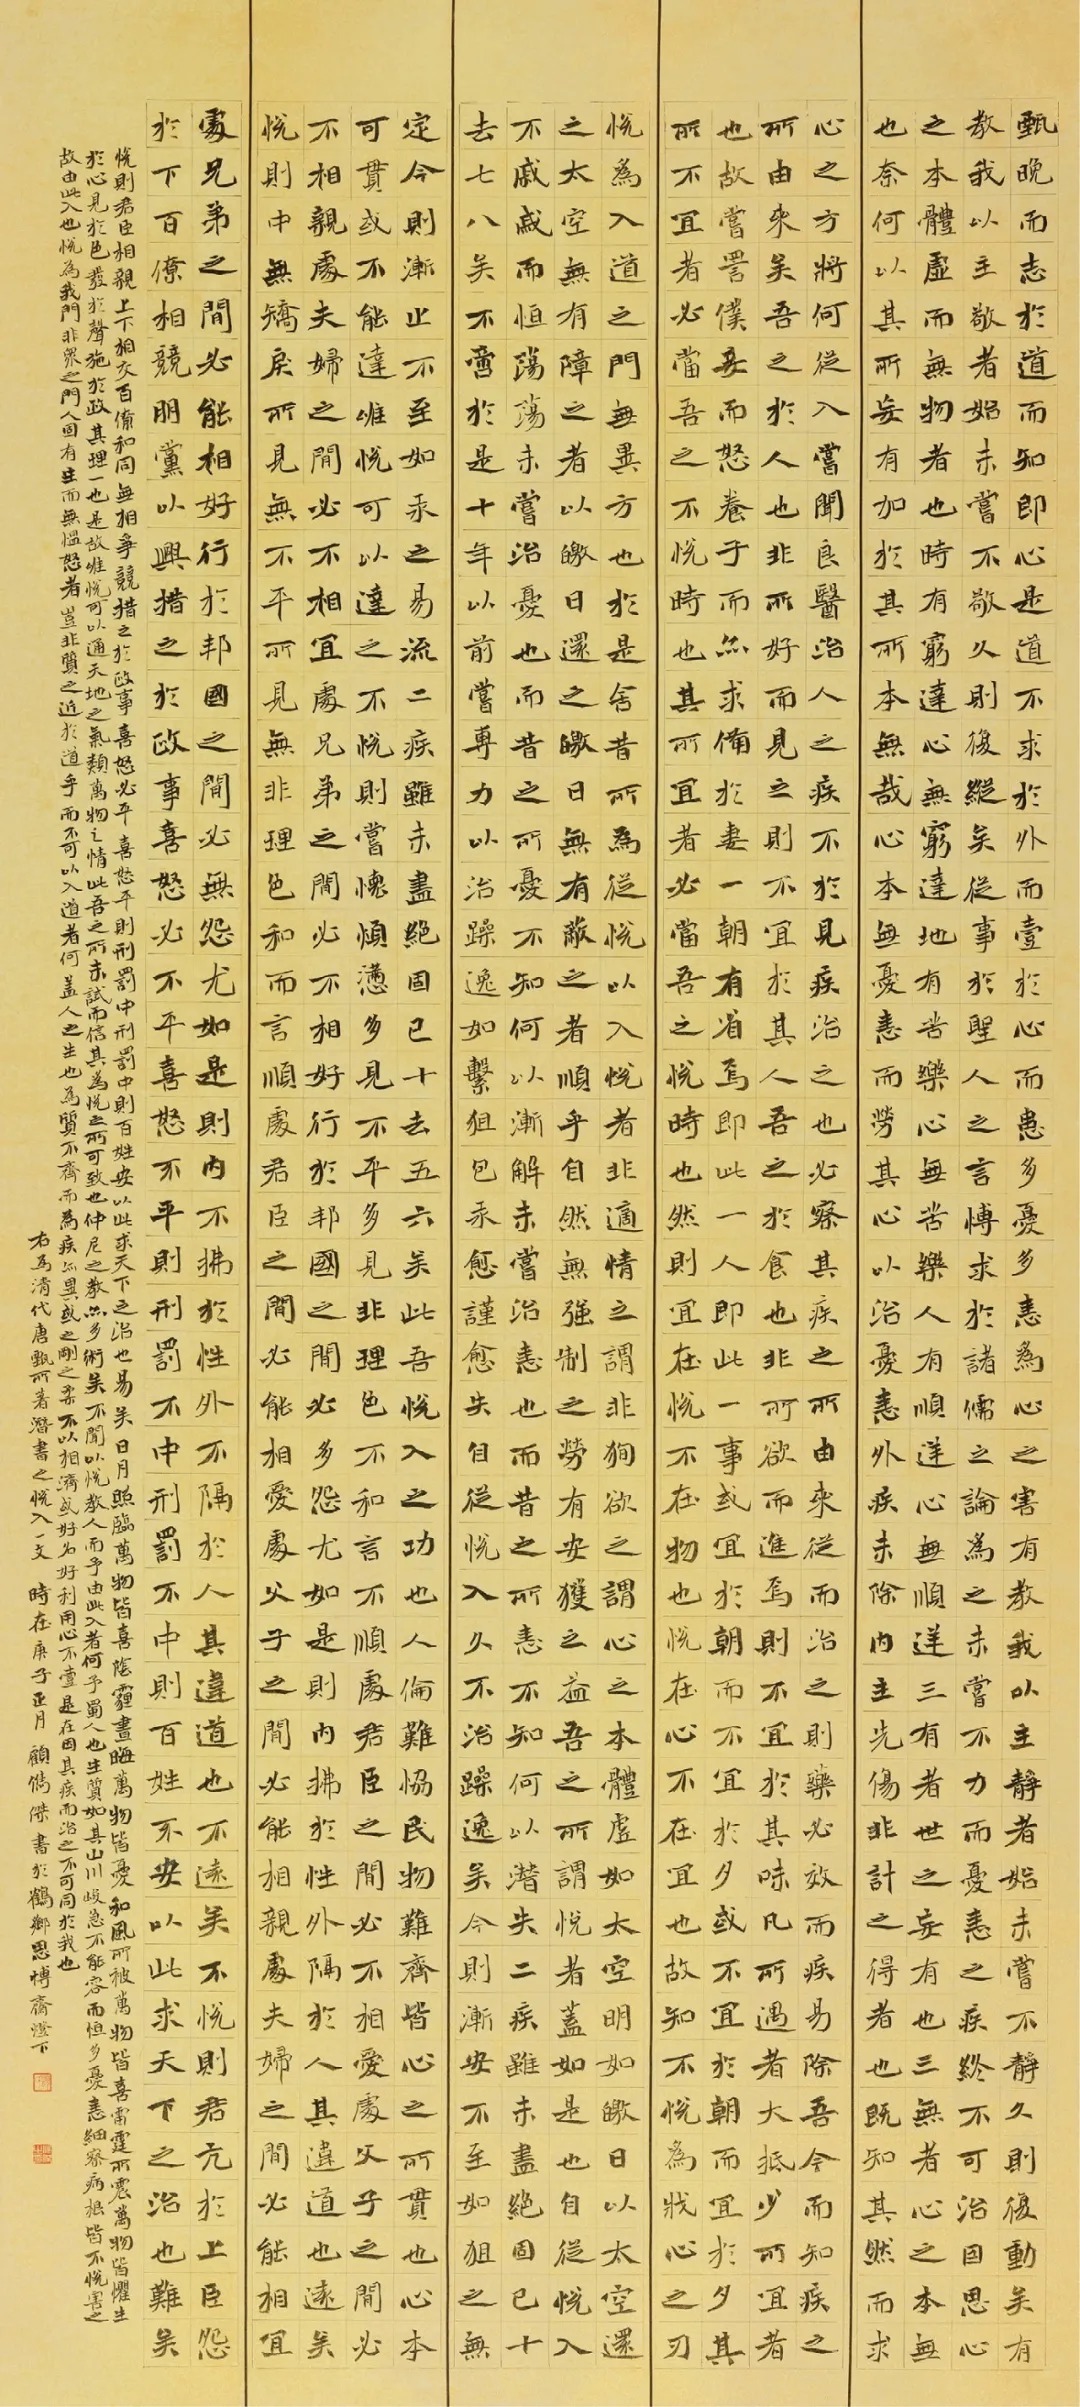 甄晚而志於道而知即心是道不求於外而壹於心而患多憂多恚為心之害有教我以主靜者始未嘗不靜久則復動矣有
教我以主敬者始未嘗不敬久則復縱矣從事於聖人之言博求於諸儒之論為之未嘗不力而憂恚之疾終不可治因思心
之本體虛而無物者也時有窮達心無窮達地有苦樂心無苦樂人有順逆心無順逆三有者世之妄有也三無者心之本無
也奈何以其所妄有加於其所本無哉心本無憂恚而勞其心以治憂恚外疾未除內主先傷非計之得者也既知其然而求
心之方將何從入嘗聞良醫治人之疾不於見疾治之也必察其疾之所由來從而治之則藥必效而疾易除吾今而知疾之
所由來矣吾之於人也非所好而見之則不宜於其人吾之於食也非所欲而進焉則不宜於其味凡所遇者大抵少所宜者
也故嘗詈僕妾而怒養子而亦求備於妻一朝有省焉即此一人即此一事或宜於朝而不宜於夕或不宜於朝而宜於夕其
所不宜者必當吾之不悅時也其所宜者必當吾之悅時也然則宜在悅不在物也悅在心不在宜也故知不悅為戕心之刃
悅為入道之門無異方也於是舍昔所為從悅以入悅者非適情之謂非狥欲之謂心之本體虛如太空明如皦日以太空還
之太空無有障之者以皦日還之皦日無有蔽之者順乎自然無强制之勞有安獲之益吾之所謂悅者蓋如是也自從悅入
不戚戚而恒蕩蕩未嘗治憂也而昔之所憂不知何以漸解未嘗治恚也而昔之所恚不知何以潛失二疾雖未盡絕固已十
去七八矣不啻於是十年以前嘗專力以治躁逸如繫狙包汞愈謹愈失自從悅入久不治躁逸矣今則漸安不至如狙之無
定今則漸止不至如汞之易流二疾雖未盡絕固已十去五六矣此吾悅入之功也人倫難協民物難齊皆心之所貫也心本
可貫或不能達惟悅可以達之不悅則嘗懷煩懣多見不平多見非理色不和言不順處君臣之間必不相愛處父子之間必
不相親處夫婦之間必不相宜處兄弟之間必不相好行於邦國之間必多怨尤如是則內拂於性外隔於人其違道也遠矣
悅則中無矯戾所見無不平所見無非理色和而言順處君臣之間必能相愛處父子之間必能相親處夫婦之間必能相宜
處兄弟之間必能相好行於邦國之間必無怨尤如是則內不拂於性外不隔於人其違道也不遠矣不悅則君亢於上臣怨
於下百僚相競朋黨以興措之於政事喜怒必不平喜怒不平則刑罰不中刑罰不中則百姓不安以此求天下之治也難矣
悅則君臣相親上下相交百僚和同無相爭競措之於政事喜怒必平喜怒平則刑罰中刑罰中則百姓安以此求天下之治也易矣日月照臨萬物皆喜陰霾晝晦萬物皆憂和風所被萬物皆喜雷霆所震萬物皆懼生
於心見於色發於聲施於政其理一也是故惟悅可以通天地之氣類萬物之情此吾之所未試而信其為悅之所可致也仲尼之教亦多術矣不聞以悅教人而予由此入者何予蜀人也生質如其山川峻急不能容而恒多憂恚細察病根皆不悅害之
故由此入也悅為我門非眾之門人固有生而無慍怒者豈非質之近於道乎而不可以入道者何蓋人之生也為質不齊而為疾亦異或之剛之柔不以相濟或好名好利用心不壹是在因其疾而治之不可同於我也
右為清代唐甄所著潛書之悅入一文 時在庚子正月 顧儁傑書於鶴鄉思博齋燈下